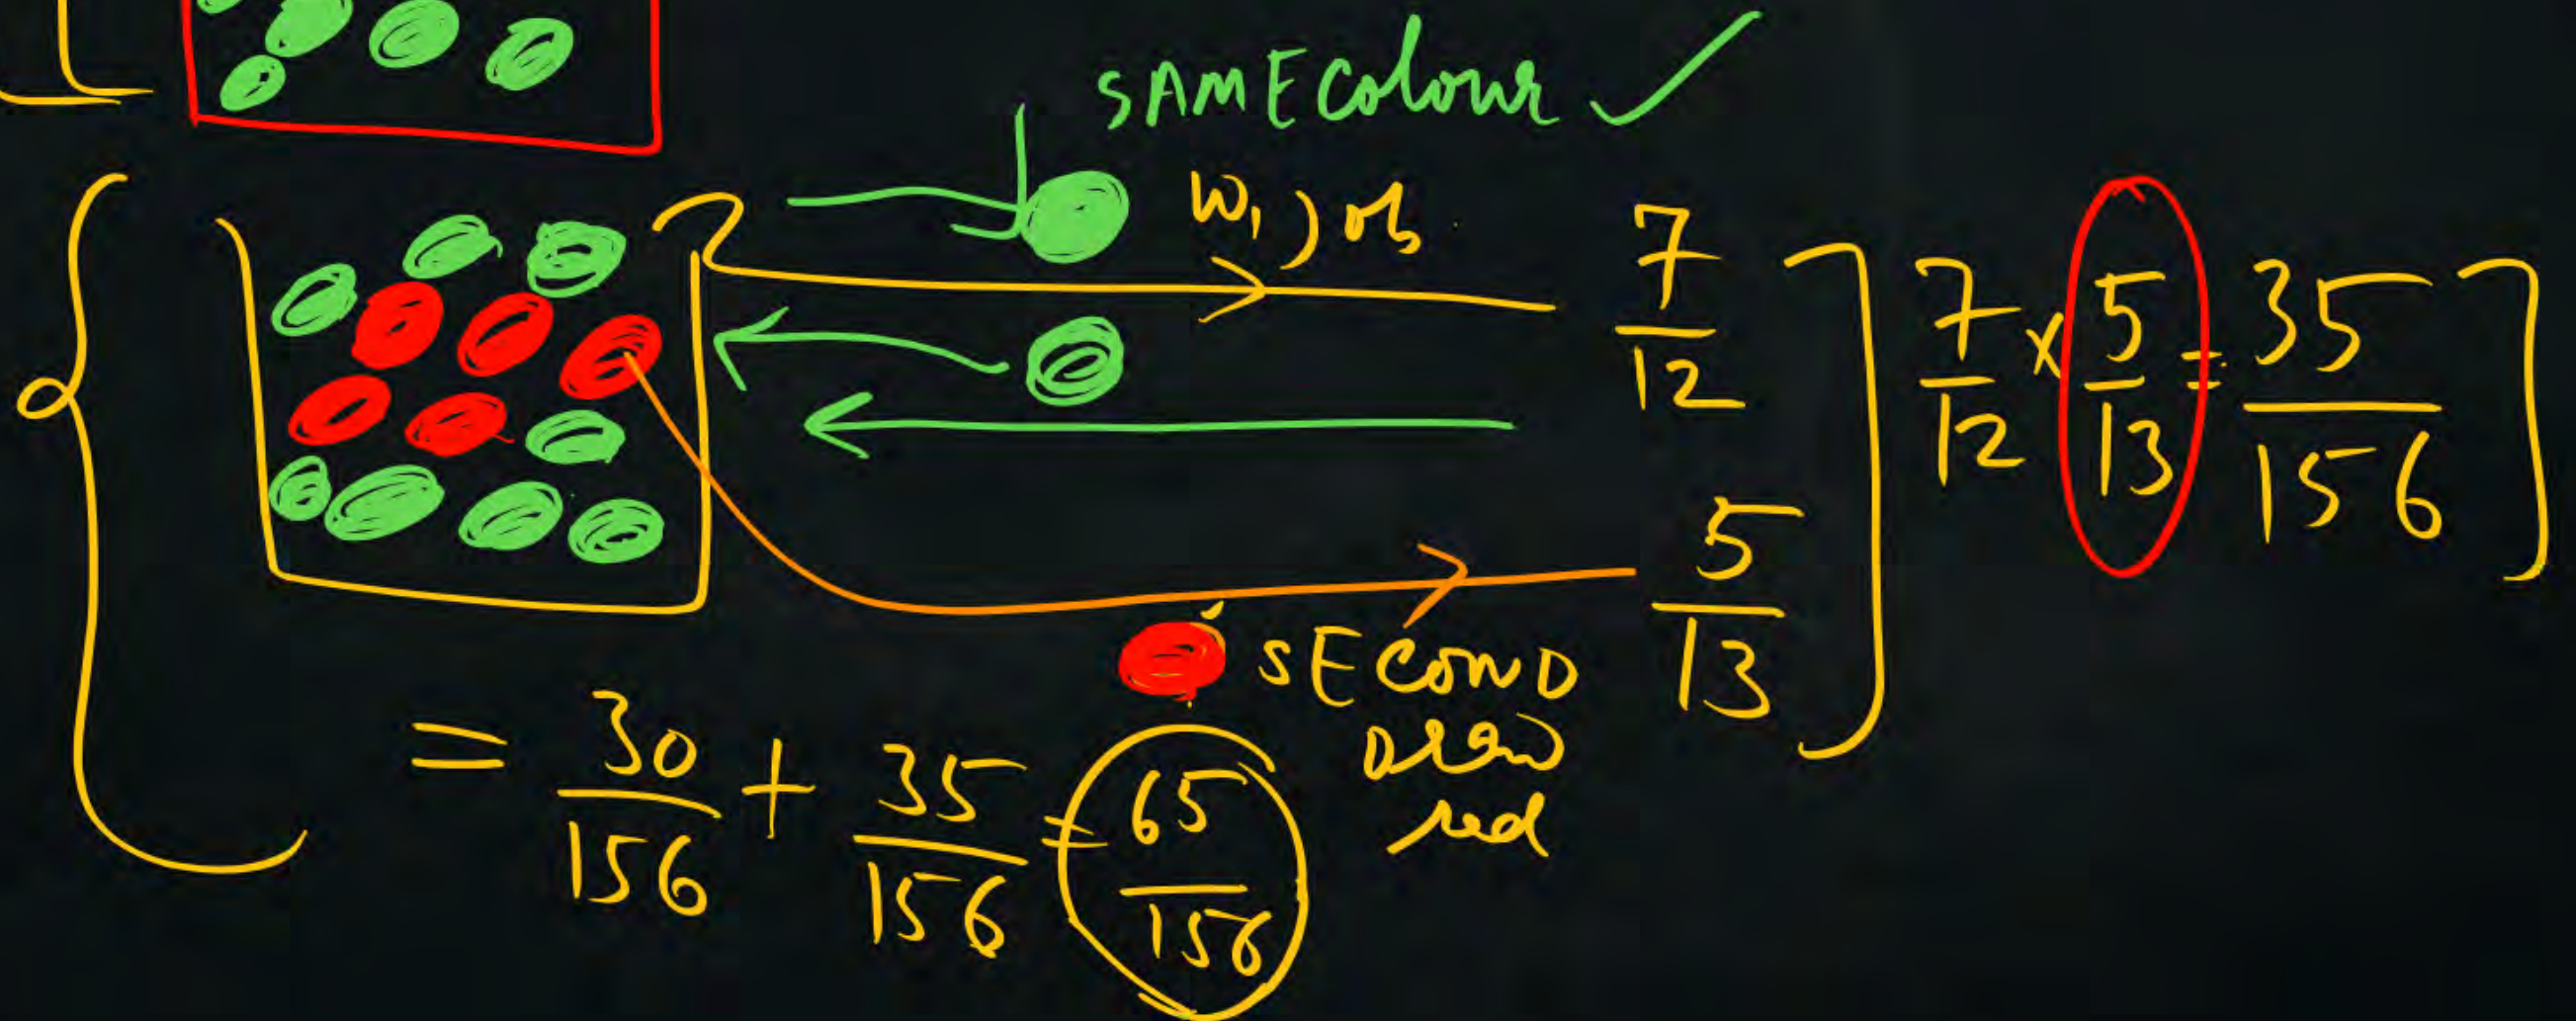 SAME Colour ✓
W, ) ob
7/12
7/12 × 5/13 = 35/156
5/13
SECOND
Draw
red
= 30/156 + 35/156 = 65/156